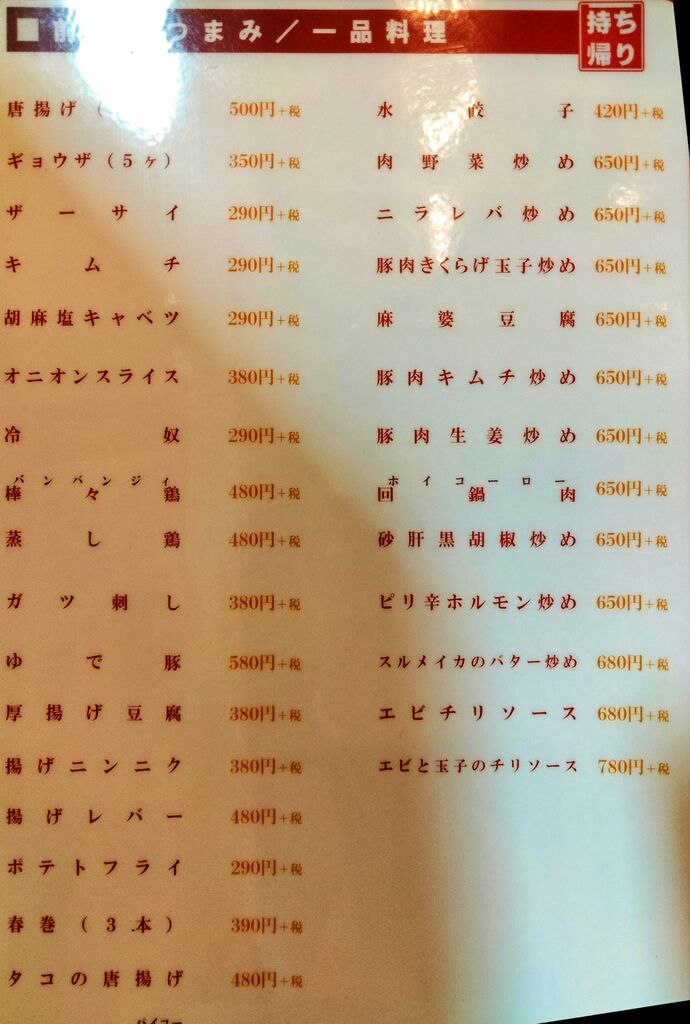 つまみ／一品料理
持ち帰り
唐揚げ( 500円+税
ギョウザ(5ヶ) 350円+税
ザーサイ 290円+税
キムチ 290円+税
胡麻塩キャベツ 290円+税
オニオンスライス 380円+税
冷奴 290円+税
バンバンジィ
棒々鶏 480円+税
蒸し鶏 480円+税
ガツ刺し 380円+税
ゆで豚 580円+税
厚揚げ豆腐 380円+税
揚げニンニク 380円+税
揚げレバー 480円+税
ポテトフライ 290円+税
春巻(3本) 390円+税
タコの唐揚げ 480円+税
パイコー
水餃子 420円+税
肉野菜炒め 650円+税
ニラレバ炒め 650円+税
豚肉きくらげ玉子炒め 650円+税
麻婆豆腐 650円+税
豚肉キムチ炒め 650円+税
豚肉生姜炒め 650円+税
ホイコーロー
回鍋肉 650円+税
砂肝黒胡椒炒め 650円+税
ピリ辛ホルモン炒め 650円+税
スルメイカのバター炒め 680円+税
エビチリソース 680円+税
エビと玉子のチリソース 780円+税